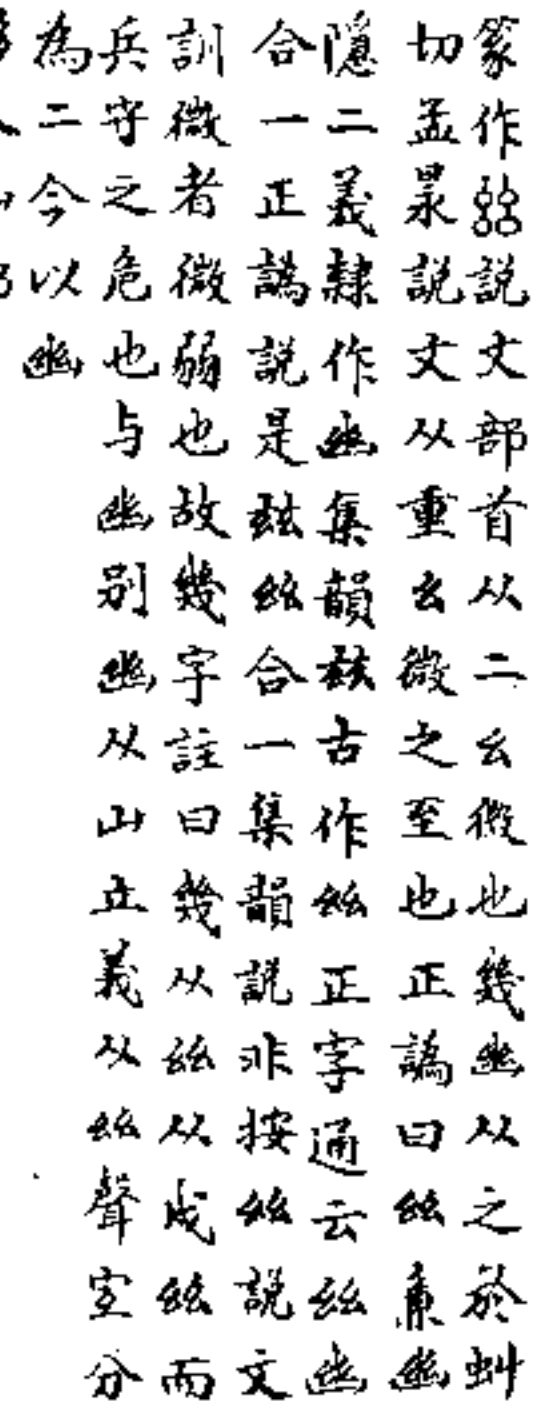 篆作𢆶說文部首从二幺微也幾幽从之於虯
切孟㫧說文从重幺微之至也正譌曰𢆶兼幽
隱二義隸作幽集韻玆古作𢆶正字通云𢆶幽
合一正譌說是玆𢆶合一集韻說非按𢆶說文
訓微者微弱也故幾字註曰幾从𢆶从戍𢆶而
兵守之危也与幽別幽从山立義从𢆶聲宜分
為二今以幽